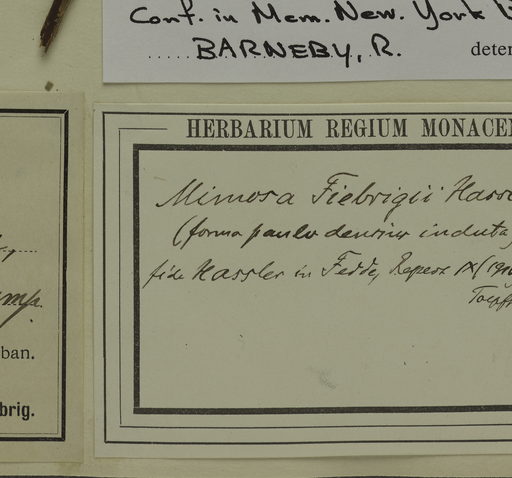 Conf. in Mem. New. York
BARNEBY, R. deter
HERBARIUM REGIUM MONACEN
Mimosa Fiebrigii Hass
(forma paulo densius induta)
fide Hassler in Fedde, Repert IX (19
Toepff
ban.
brig.